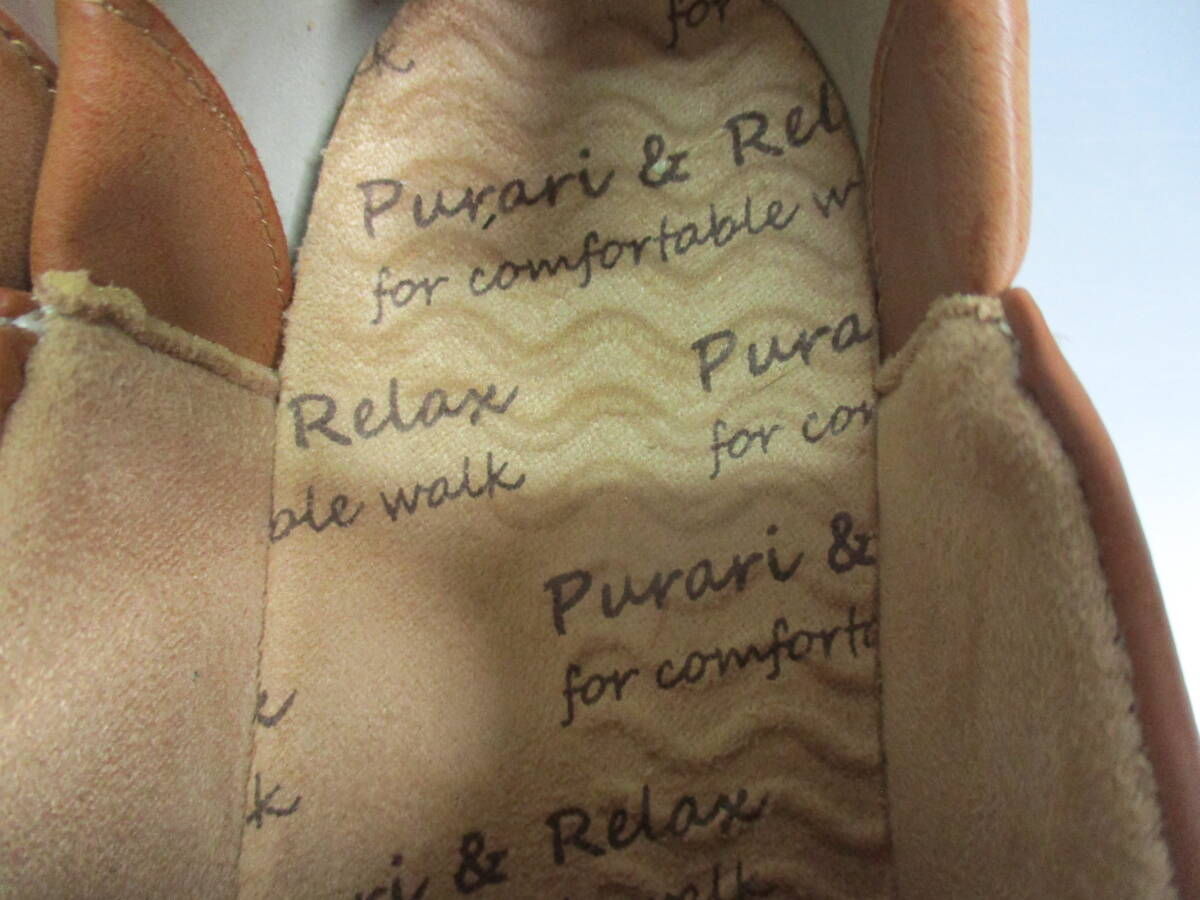 for
k
Purari & Rel
for comfortable w
Pura
for com
Relax
ble walk
Purari &
for comforta
k
ri & Relax
walk